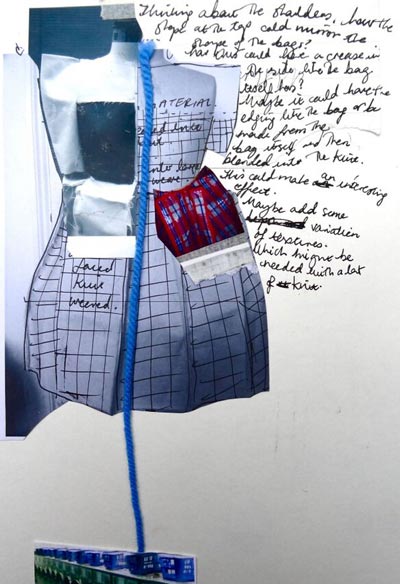 Thinking about the shoulders, how the
shape at the top cold mirror the
shape of the bags?
could like a crease in
the side like the bag
itself has?
Maybe it could have the
edging like the bag or be
made from the
bag itself and then
blended into the knit.
This could make an interesting
effect.
Maybe add some
variation
of textures.
Which might be
needed with a lot
of knit.
MATERIAL
into
weave.
knit
weaved.